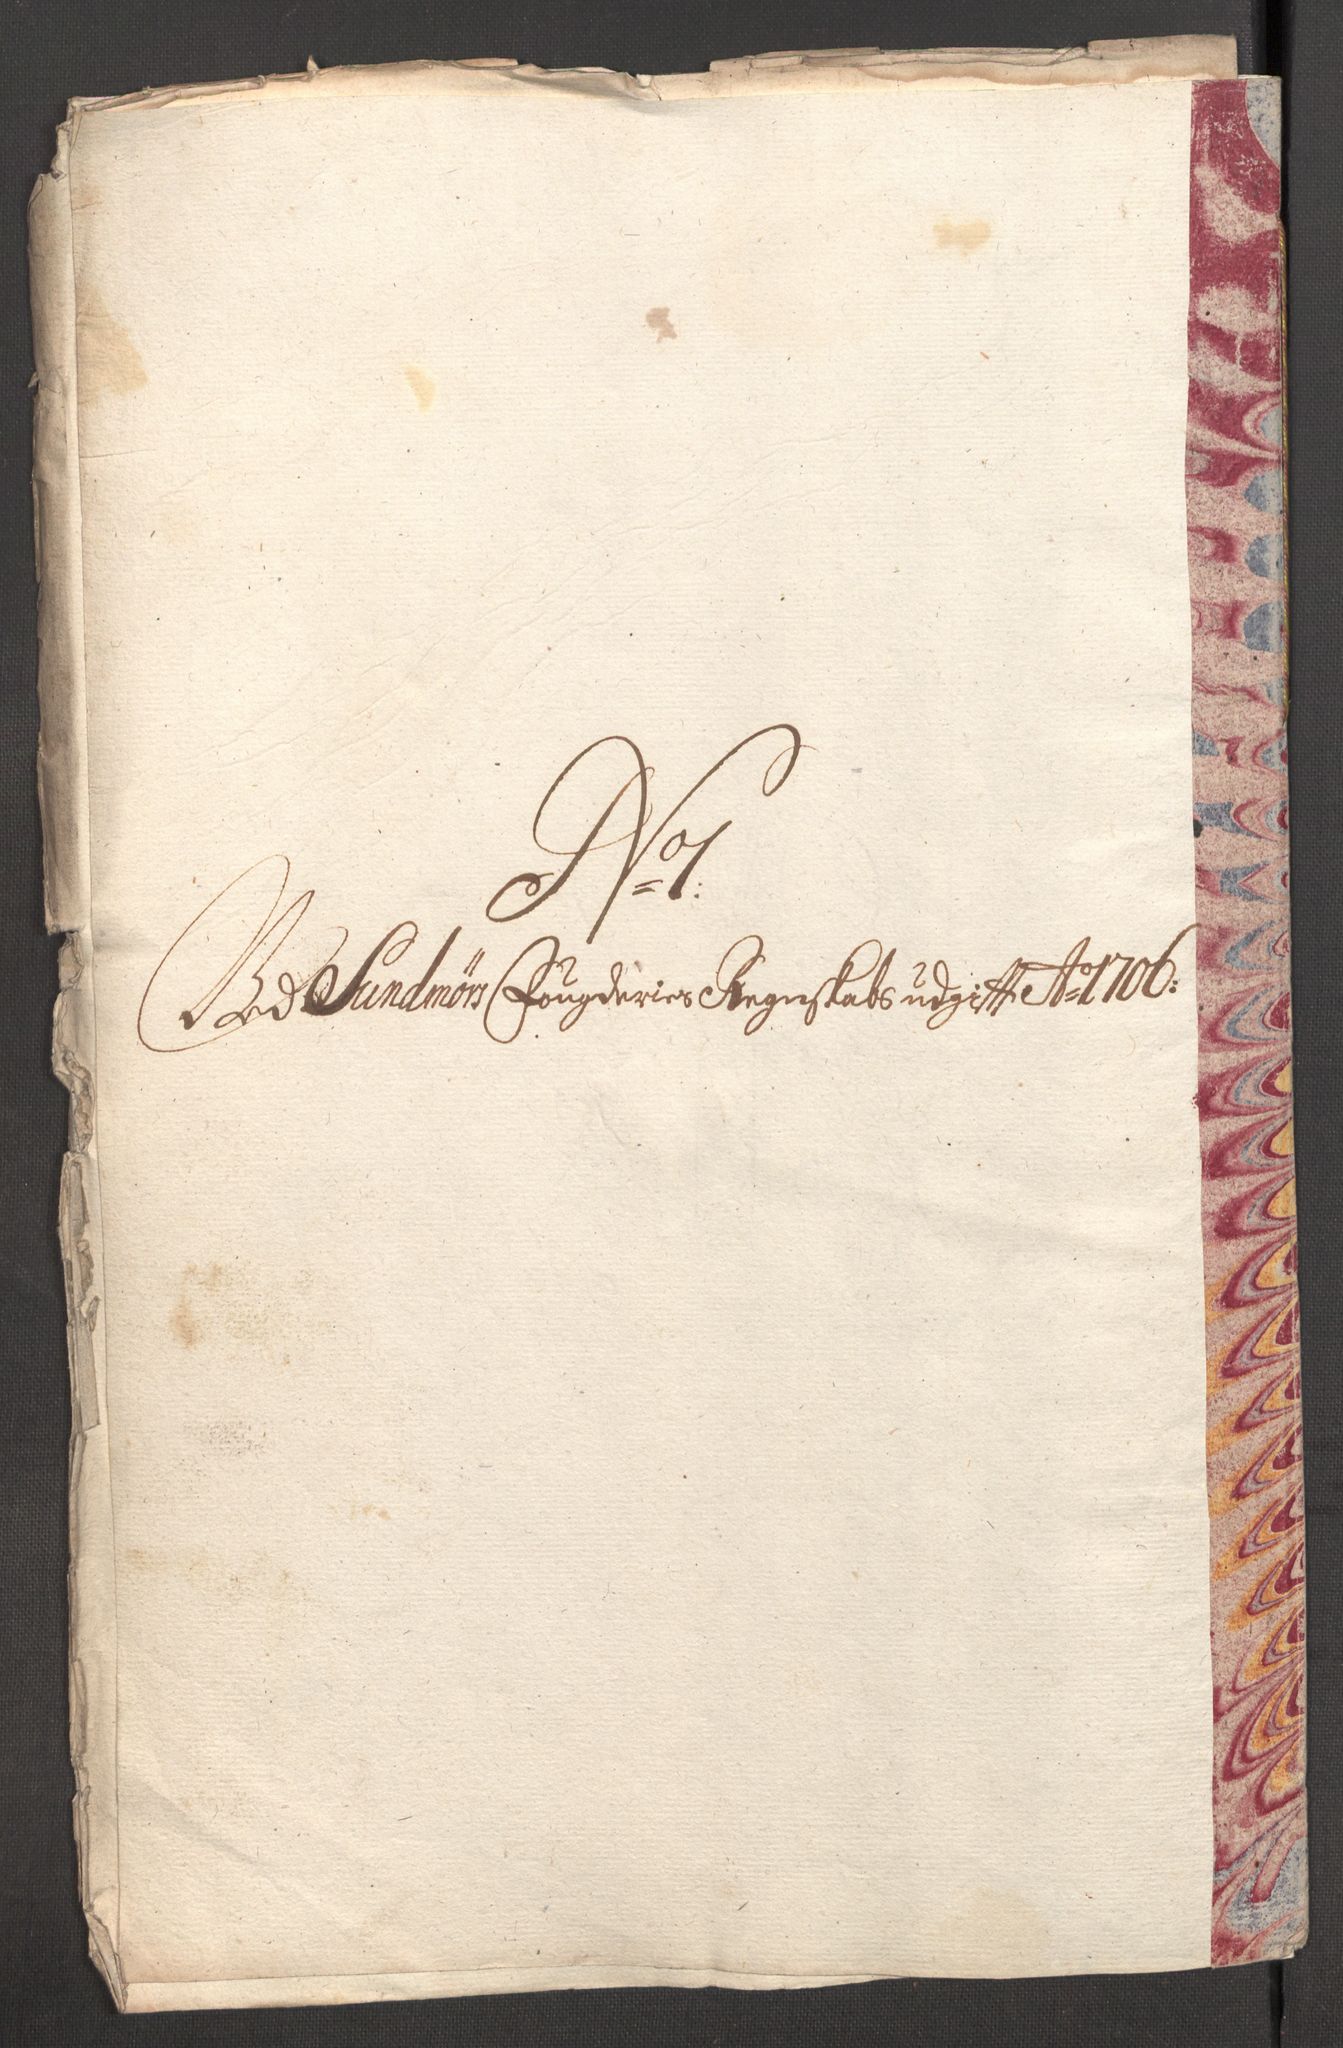 No 1:
Ved Sundmörs Fougderies Regnskabs udgift Ao 1706: